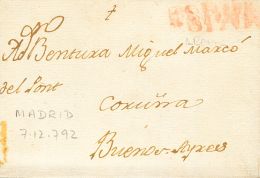 ESPAÑA
A Dn Bentura Miguel Marcó
del Pont
Coruña
MADRID
7.12.792
Buenos-Ayres